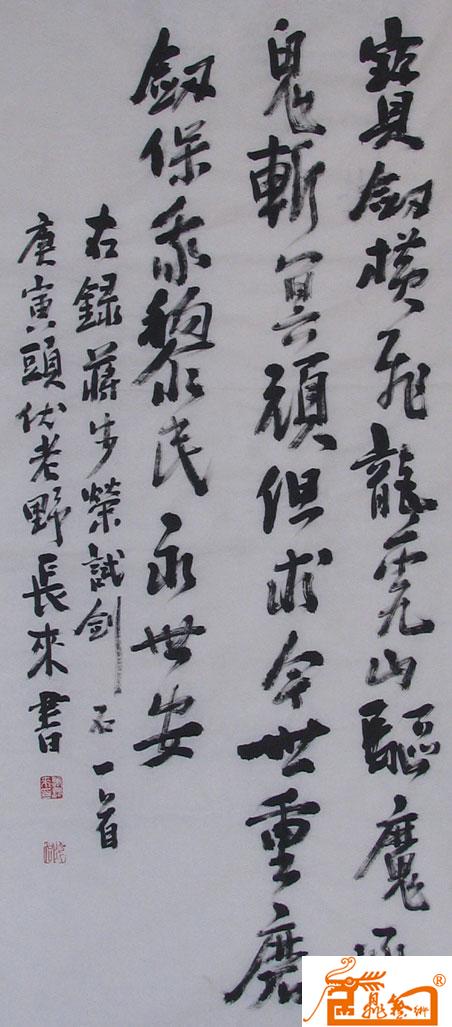 寶劍橫飛龍虎山驅魔
鬼斬冥頑但求今世重磨
劍保我黎民永世安
右録蔣步榮試剑石一首
庚寅頭伏老野長來書